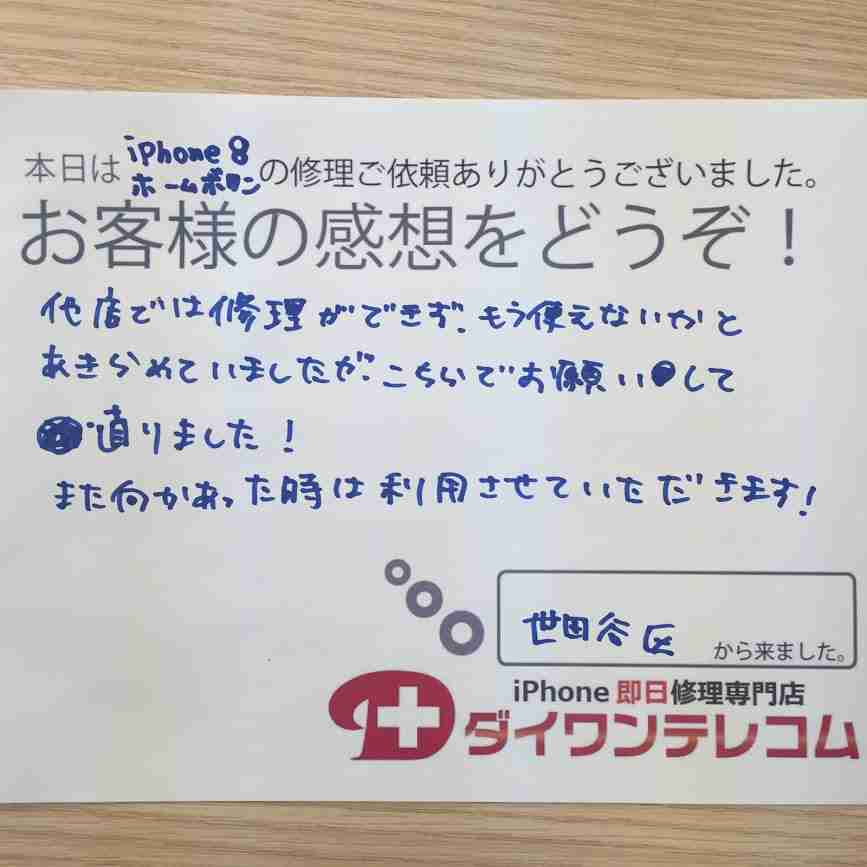 本日は iPhone 8 ホームボタン の修理ご依頼ありがとうございました。
お客様の感想をどうぞ！
他店では修理ができず、もう使えないかと
あきらめていましたが、こちらでお願いして
直りました！
また何かあった時は利用させていただきます！
世田谷区 から来ました。
iPhone 即日修理専門店
ダイワンテレコム